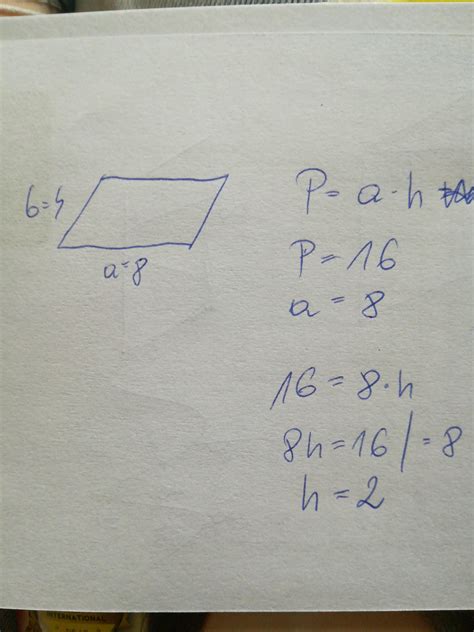 P = a · h
b=4
a=8
P = 16
a = 8
16 = 8 · h
8h = 16 /= 8
h = 2
INTERNATIONAL